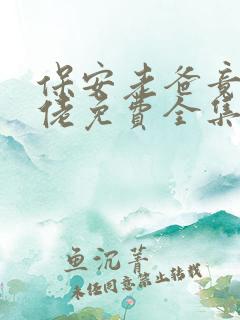 保安老爸竟
佬免费全集
鱼沉菁
未经同意禁止转载